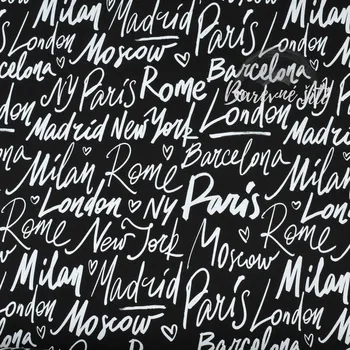 Milan Madrid Paris Milan
London Rome London
Moscow Barcelona Moscow
NY Paris Rome Barevné šití
Madrid New York London Madrid
Milan Rome Barcelona Milan
London NY Paris London
Rome New York Moscow Rome
Milan Madrid Paris Milan
London Rome London
Moscow Barcelona Moscow